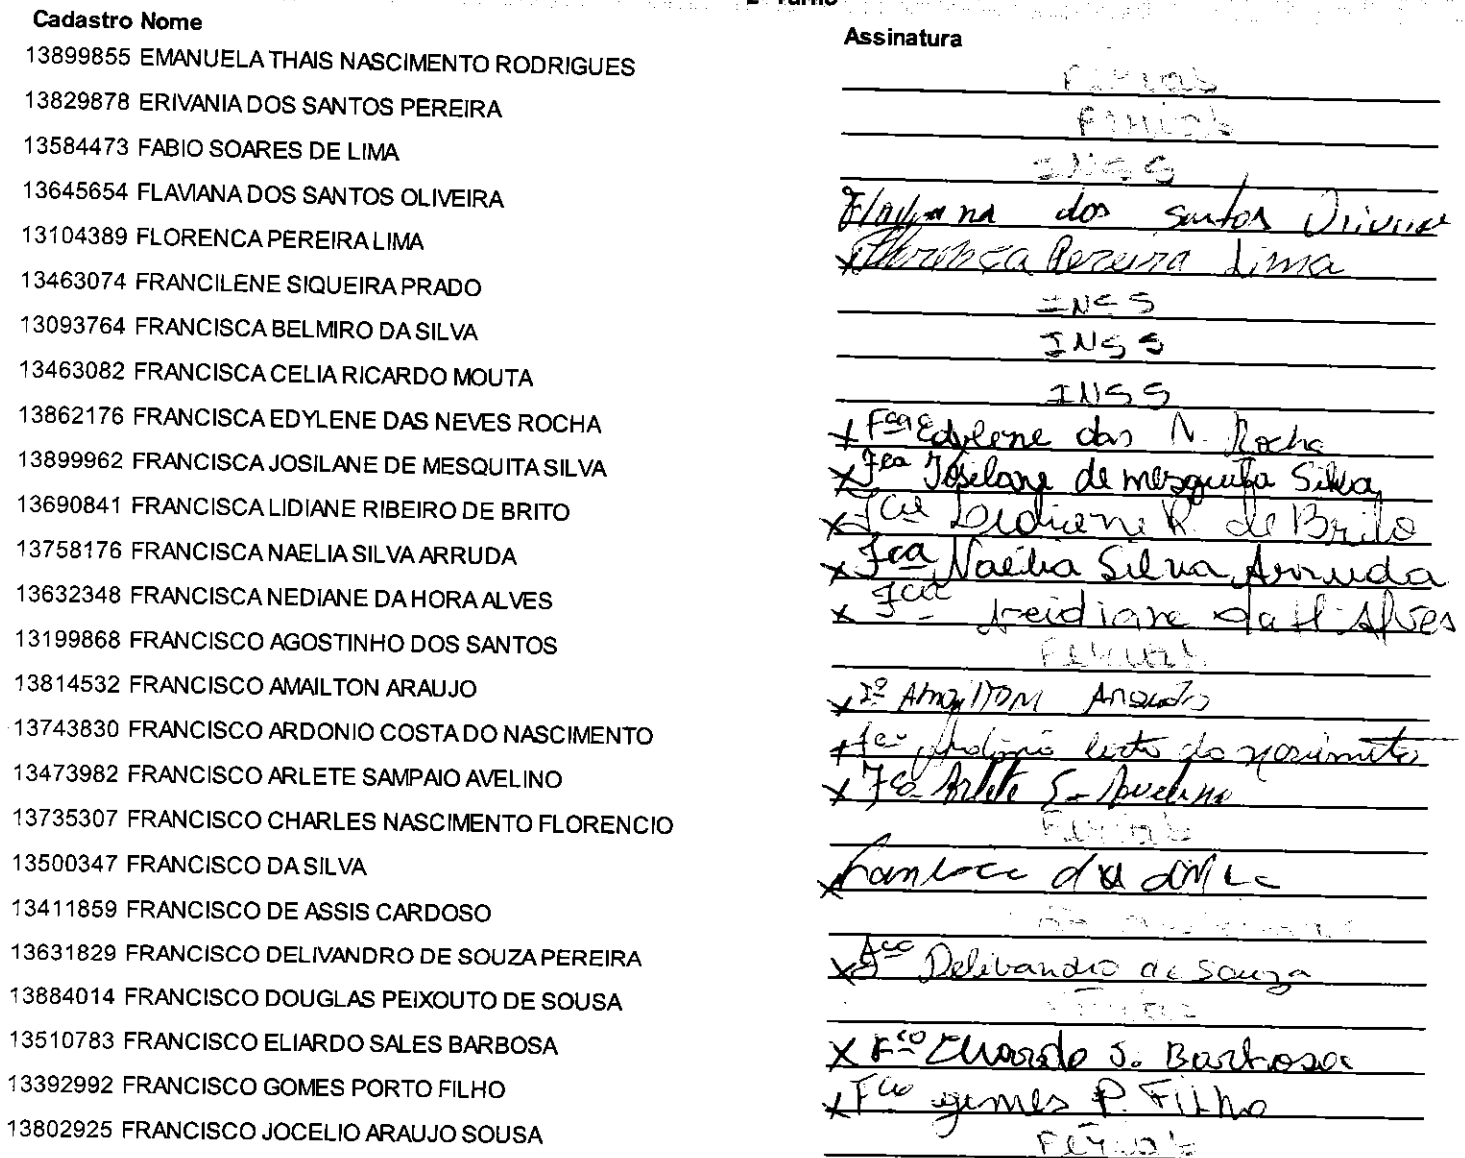 2º Turno
Cadastro Nome Assinatura
13899855 EMANUELA THAIS NASCIMENTO RODRIGUES Férias
13829878 ERIVANIA DOS SANTOS PEREIRA Férias
13584473 FABIO SOARES DE LIMA INSS
13645654 FLAVIANA DOS SANTOS OLIVEIRA Flaviana dos santos Oliveira
13104389 FLORENCA PEREIRA LIMA x Florença Pereira Lima
13463074 FRANCILENE SIQUEIRA PRADO INSS
13093764 FRANCISCA BELMIRO DA SILVA INSS
13463082 FRANCISCA CELIA RICARDO MOUTA INSS
13862176 FRANCISCA EDYLENE DAS NEVES ROCHA x Fca Edylene das N. Rocha
13899962 FRANCISCA JOSILANE DE MESQUITA SILVA x Fca Josilane de mesquita Silva
13690841 FRANCISCA LIDIANE RIBEIRO DE BRITO x Fca Lidiane R. de Brito
13758176 FRANCISCA NAELIA SILVA ARRUDA x Fca Naélia Silva Arruda
13632348 FRANCISCA NEDIANE DA HORA ALVES x Fca Neidiane da H. Alves
13199868 FRANCISCO AGOSTINHO DOS SANTOS Férias
13814532 FRANCISCO AMAILTON ARAUJO x Fº Amailton Araujo
13743830 FRANCISCO ARDONIO COSTA DO NASCIMENTO x Fco Ardonio costa do nascimento
13473982 FRANCISCO ARLETE SAMPAIO AVELINO x Fco Arlete S. Avelino
13735307 FRANCISCO CHARLES NASCIMENTO FLORENCIO Férias
13500347 FRANCISCO DA SILVA x
13411859 FRANCISCO DE ASSIS CARDOSO
13631829 FRANCISCO DELIVANDRO DE SOUZA PEREIRA x Fco Delivandro de Souza
13884014 FRANCISCO DOUGLAS PEIXOUTO DE SOUSA Férias
13510783 FRANCISCO ELIARDO SALES BARBOSA x Fco Eliardo S. Barbosa
13392992 FRANCISCO GOMES PORTO FILHO x Fco gomes P. Filho
13802925 FRANCISCO JOCELIO ARAUJO SOUSA Férias